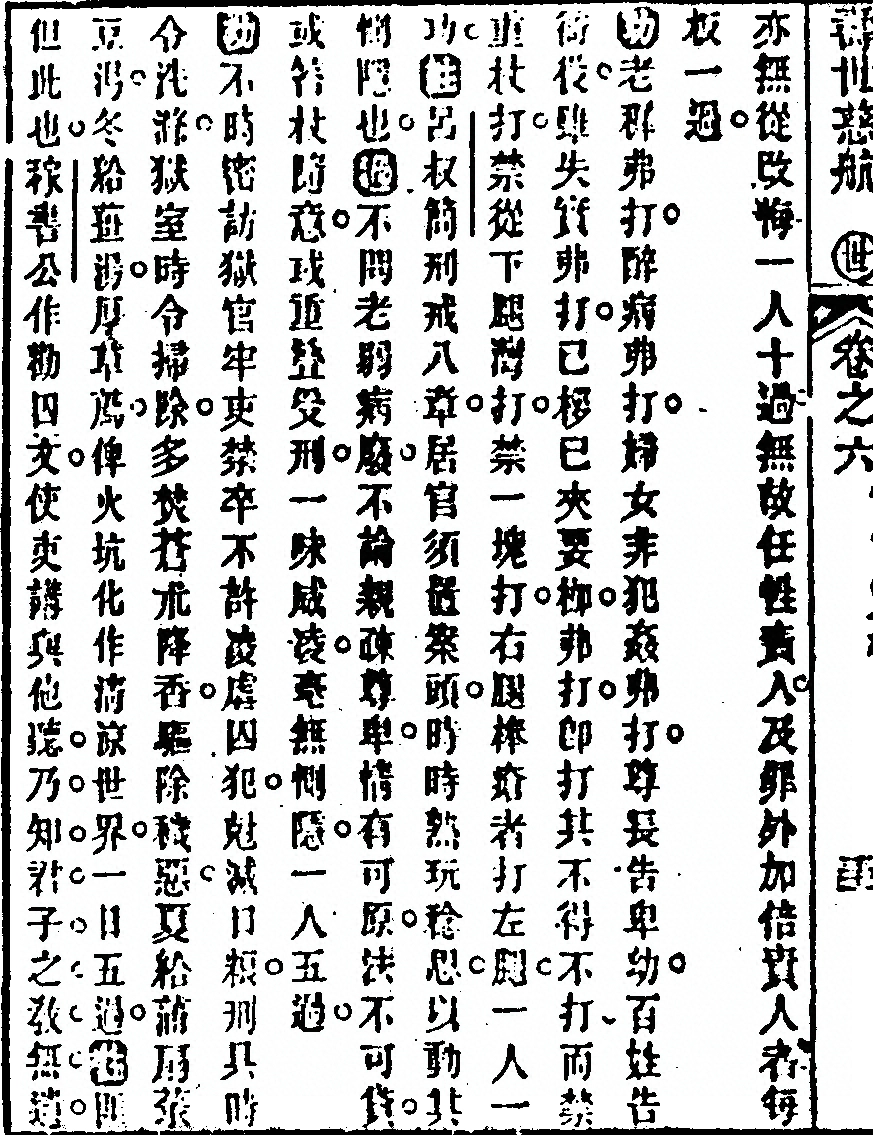 善世慈航 世 卷之六
亦無從改悔一人十過無故任性責人及罪外加倍責人者每
板一過
功老耶弗打醉病弗打婦女非犯姦弗打尊長告卑幼百姓告
衙役雖失實弗打已拶已夾要枷弗打即打其不得不打而禁
重杖打禁從下腿灣打禁一塊打右腿棒瘡者打左腿一人一
功註呂叔簡刑戒八章居官須置案頭時時熟玩稔思以動其
惻隱也過不問老弱病廢不論親疎尊卑情有可原法不可貸
或笞杖隨意或重疊受刑一味威凌毫無惻隱一人五過
功不時密訪獄官牢吏禁卒不許凌虐囚犯剋減口糧刑具時
令洗滌獄室時令掃除多焚蒼朮降香驅除穢惡夏給蒲扇
豆湯冬給薑湯厚草薦俾火坑化作清涼世界一日五過註
但此也稼書公作勸囚文使吏講與他聽乃知君子之教無